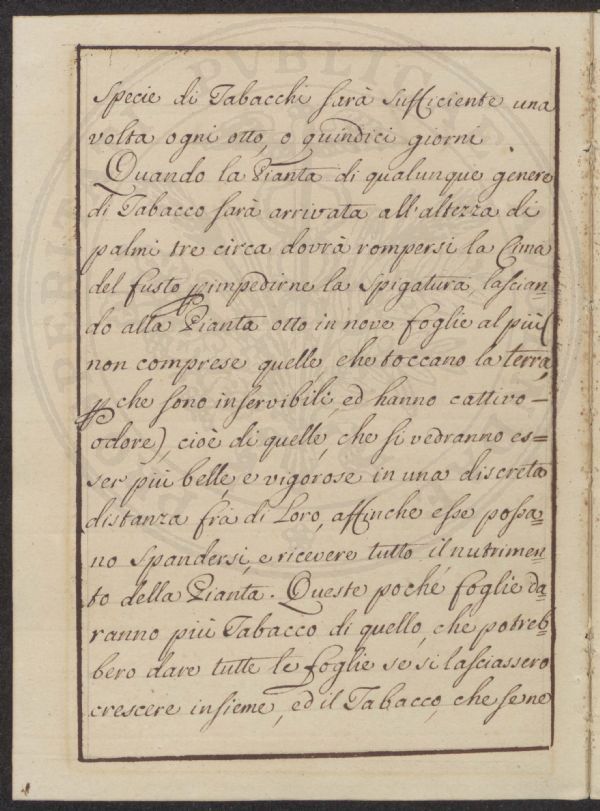 specie di Tabacchi sarà sufficiente una
volta ogni otto, o quindici giorni
Quando la Pianta di qualunque genere
di Tabacco sarà arrivata all'altezza di
palmi tre circa dovrà rompersi la Cima
del fusto p impedirne la spigatura, lascian-
do alla Pianta otto in nove foglie al più (
non comprese quelle, che toccano la terra,
p che sono inservibili, ed hanno cattivo -
odore), cioè di quelle, che si vedranno es=
ser più belle, e vigorose in una discreta
distanza frà di Loro, affinche esse possa-
no spandersi, e ricevere tutto il nutrimen-
to della Pianta. Queste poche foglie da-
ranno più Tabacco di quello, che potreb-
bero dare tutte le foglie se si lasciassero
crescere insieme, ed il Tabacco, che se ne